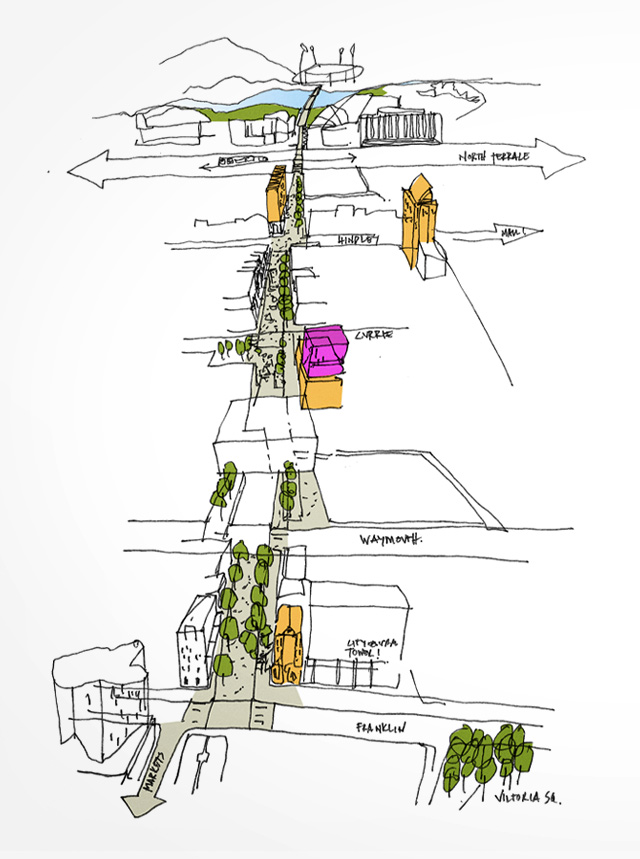 NORTH TERRALE
HINDLEY
MALL
CURRIE
WAYMOUTH.
TOWER!
FRANKLIN
MARKETS
VILTORIA SQ.